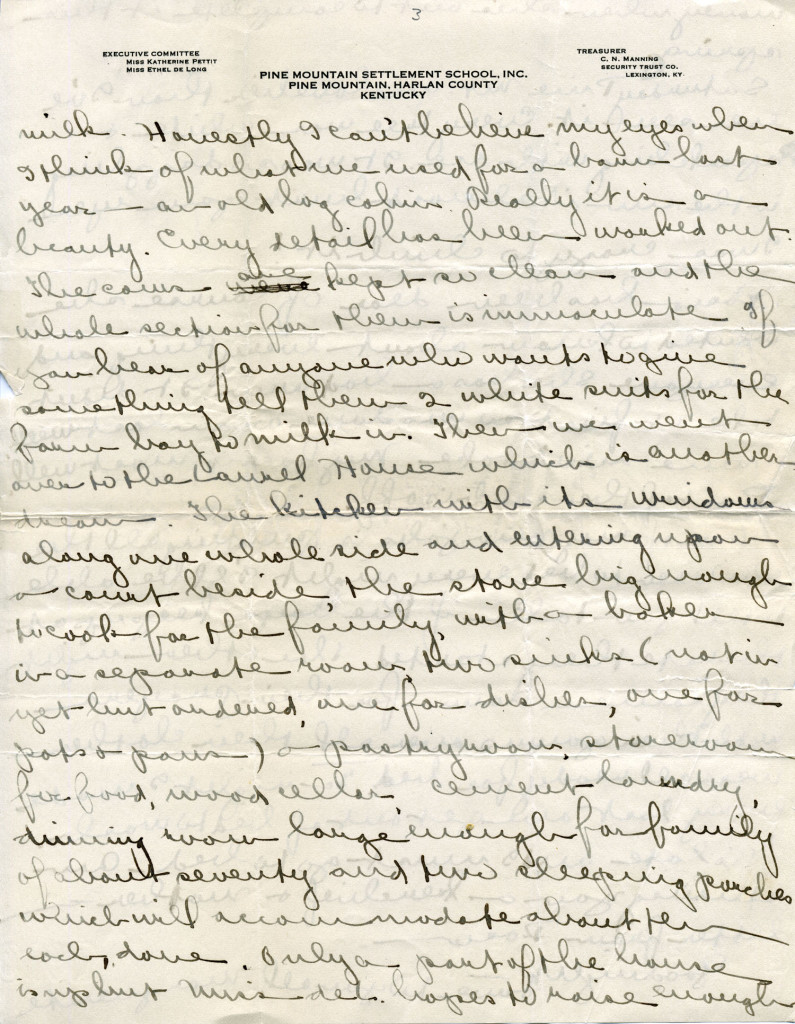 3
EXECUTIVE COMMITTEE
MISS KATHERINE PETTIT
MISS ETHEL DE LONG
TREASURER
C. N. MANNING
SECURITY TRUST CO.
LEXINGTON, KY.
PINE MOUNTAIN SETTLEMENT SCHOOL, INC.
PINE MOUNTAIN, HARLAN COUNTY
KENTUCKY
milk. Honestly I can't believe my eyes when
I think of what we used for a barn last
year — an old log cabin. Really it is a
beauty. Every detail has been worked out.
The cows are kept so clean and the
whole section for them is immaculate. If
you hear of anyone who wants to give
something tell them 2 white suits for the
farm boy to milk in. Then we went
over to the Laurel House which is another
dream. The kitchen with its windows
along one whole side and entering upon
a court beside, the stove big enough
to cook for the family, with a baker
in a separate room, two sinks (not in
yet but ordered, one for dishes, one for
pots & pans) a pastry room, storeroom
for food, wood cellar, cement laundry,
dining room large enough for family
of about seventy and two sleeping porches
which will accommodate about ten
each, done. Only a part of the house
is up but Miss deL. hopes to raise enough